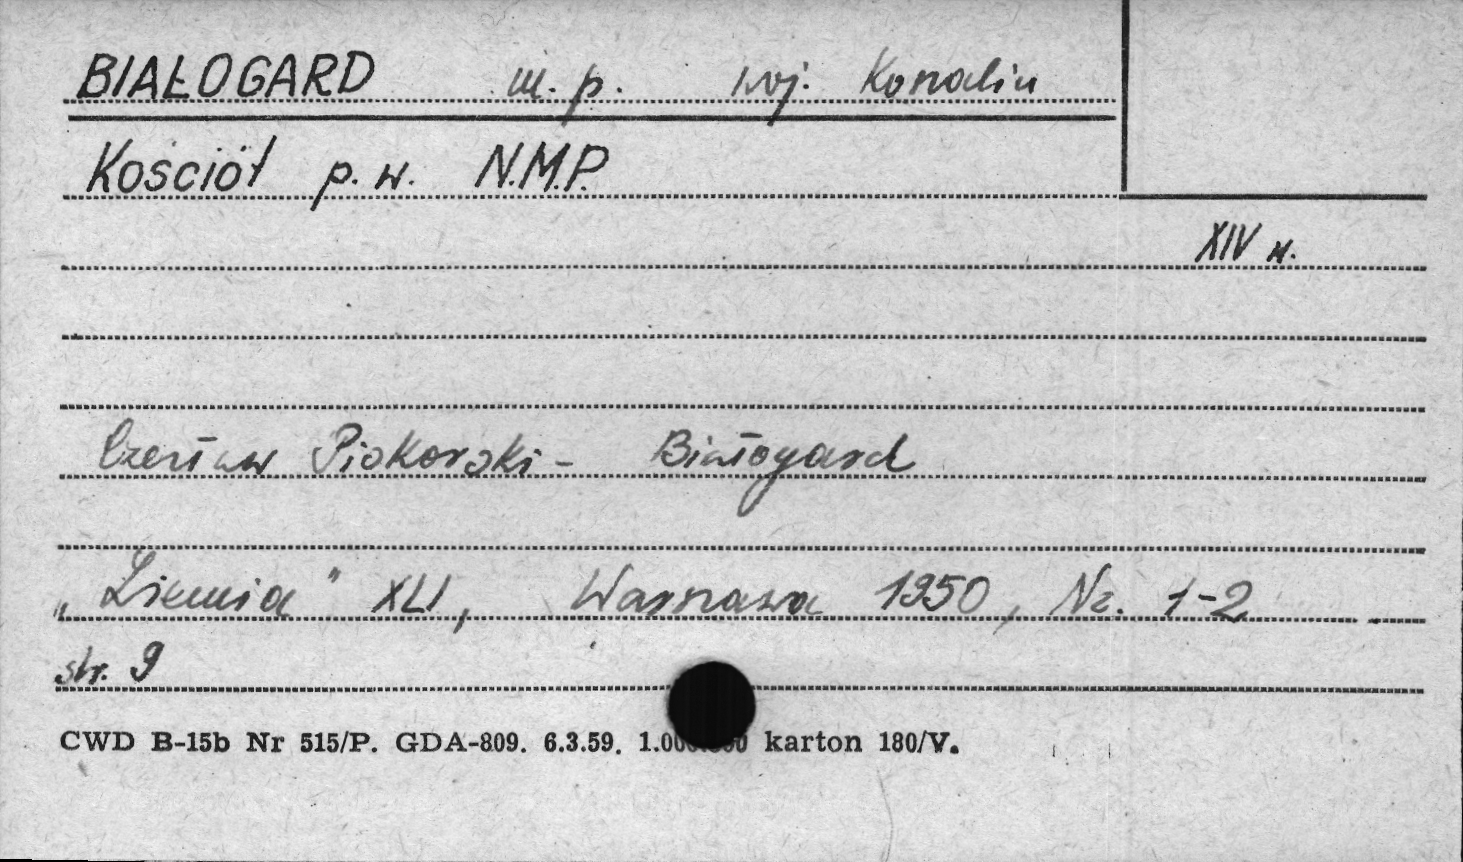 BIAŁOGARD m. p. woj. Koszalin
Kościół p. w. N.M.P.
XIV w.
Czesław Piskorski - Białogard
„Ziemia" XLI, Warszawa 1950, Nr. 1-2
str. 9
CWD B-15b Nr 515/P. GDA-809. 6.3.59. karton 180/V.